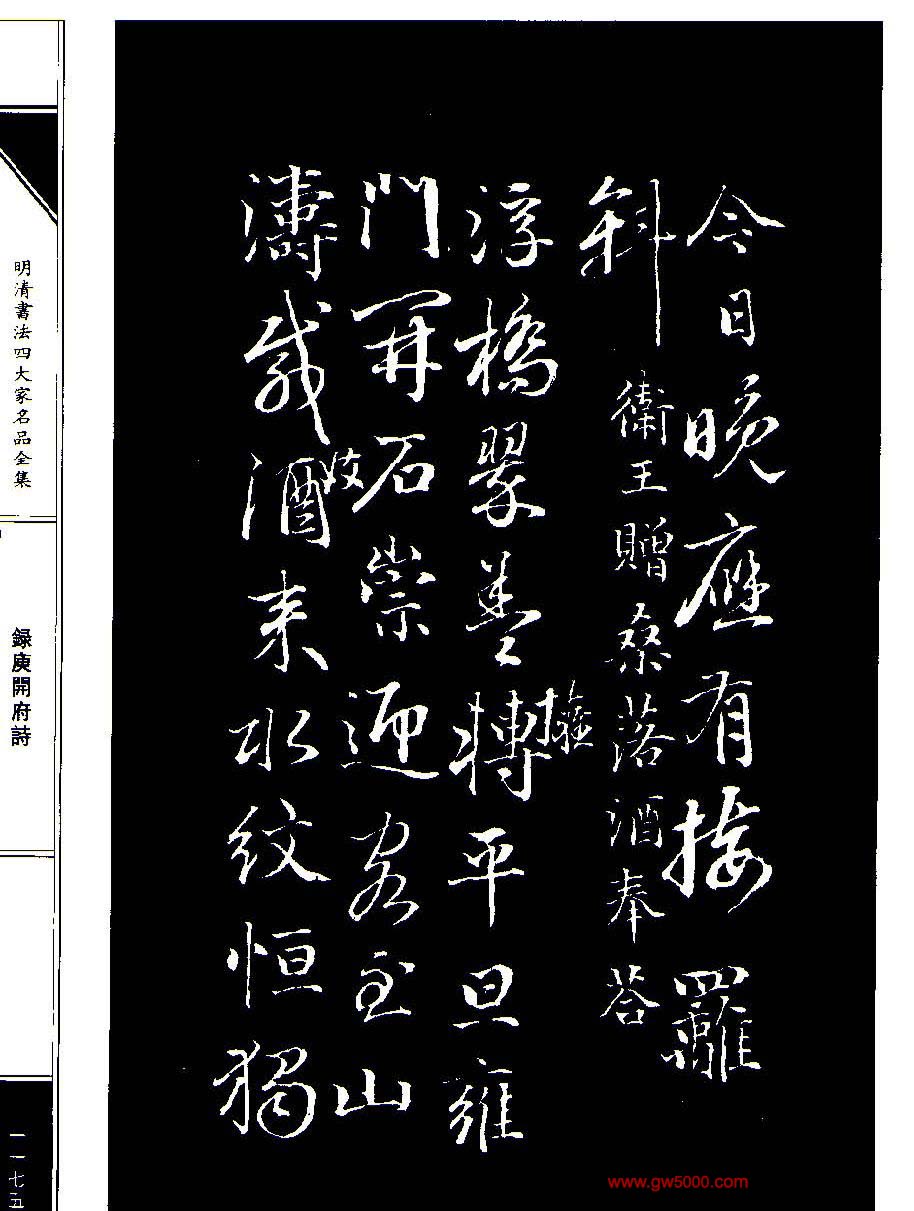 今日晚應有接䍦
斜 衛王贈桑落酒奉荅
浮橋翠盖轉平旦雍
擁
門開石崇迎客至山
濤載酒来水紋恒獨
明清書法四大家名品全集
録庾開府詩
一一七五
www.gw5000.com